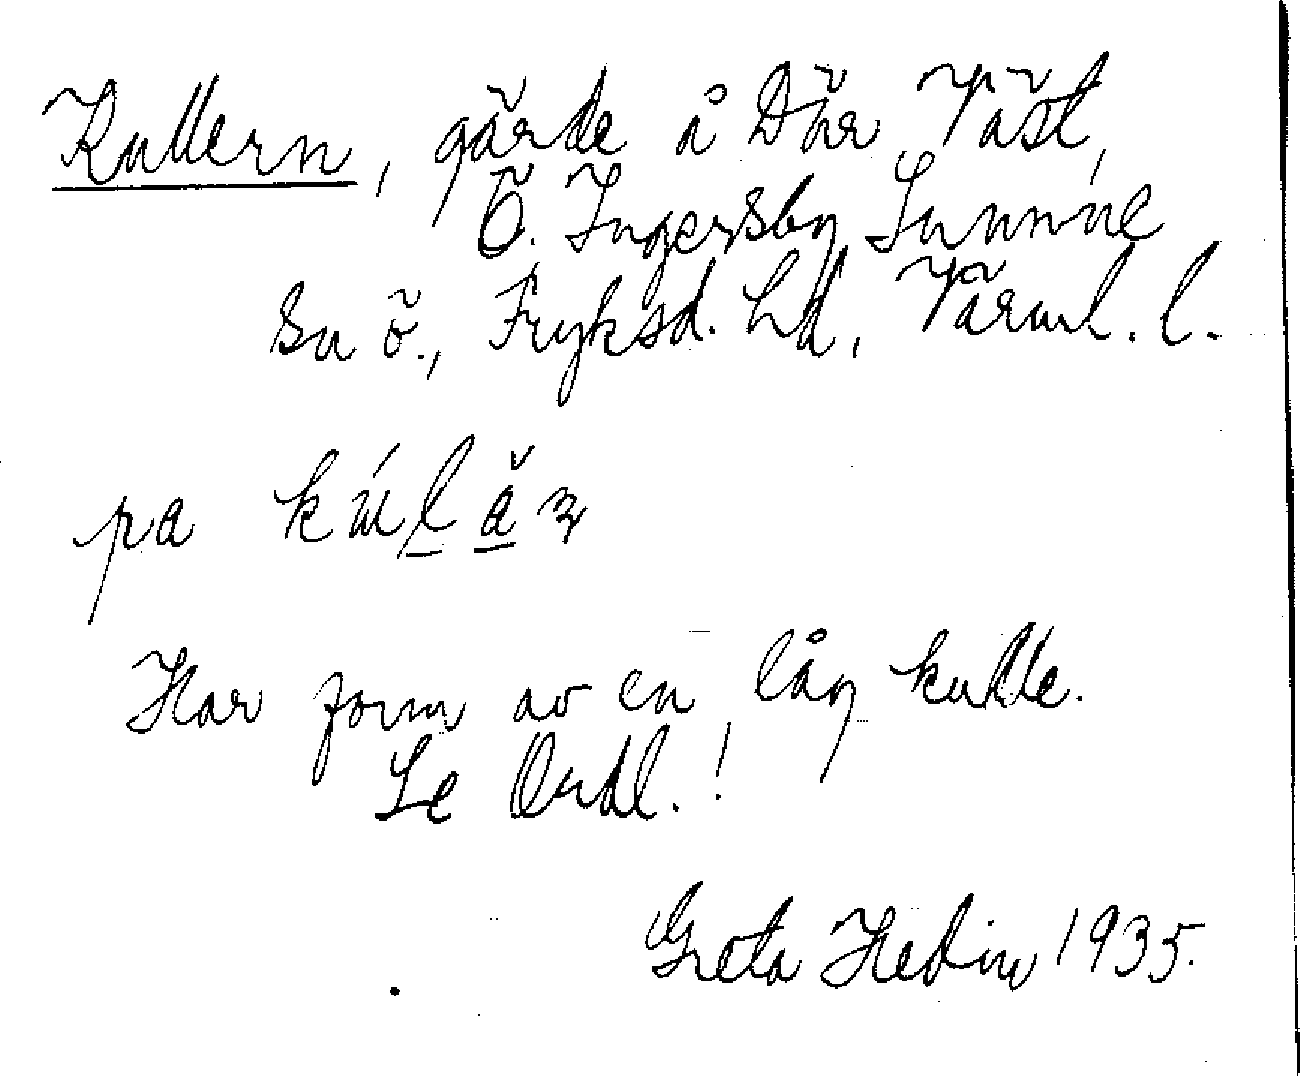 Kullern, gärde å Där Väst,
Ö. Ingersby Sunnne
sn ö., Fryksd. hd, Värml. l.
pa
Har form av en låg kulle.
Se Ordl.!
Greta Hedin 1935.